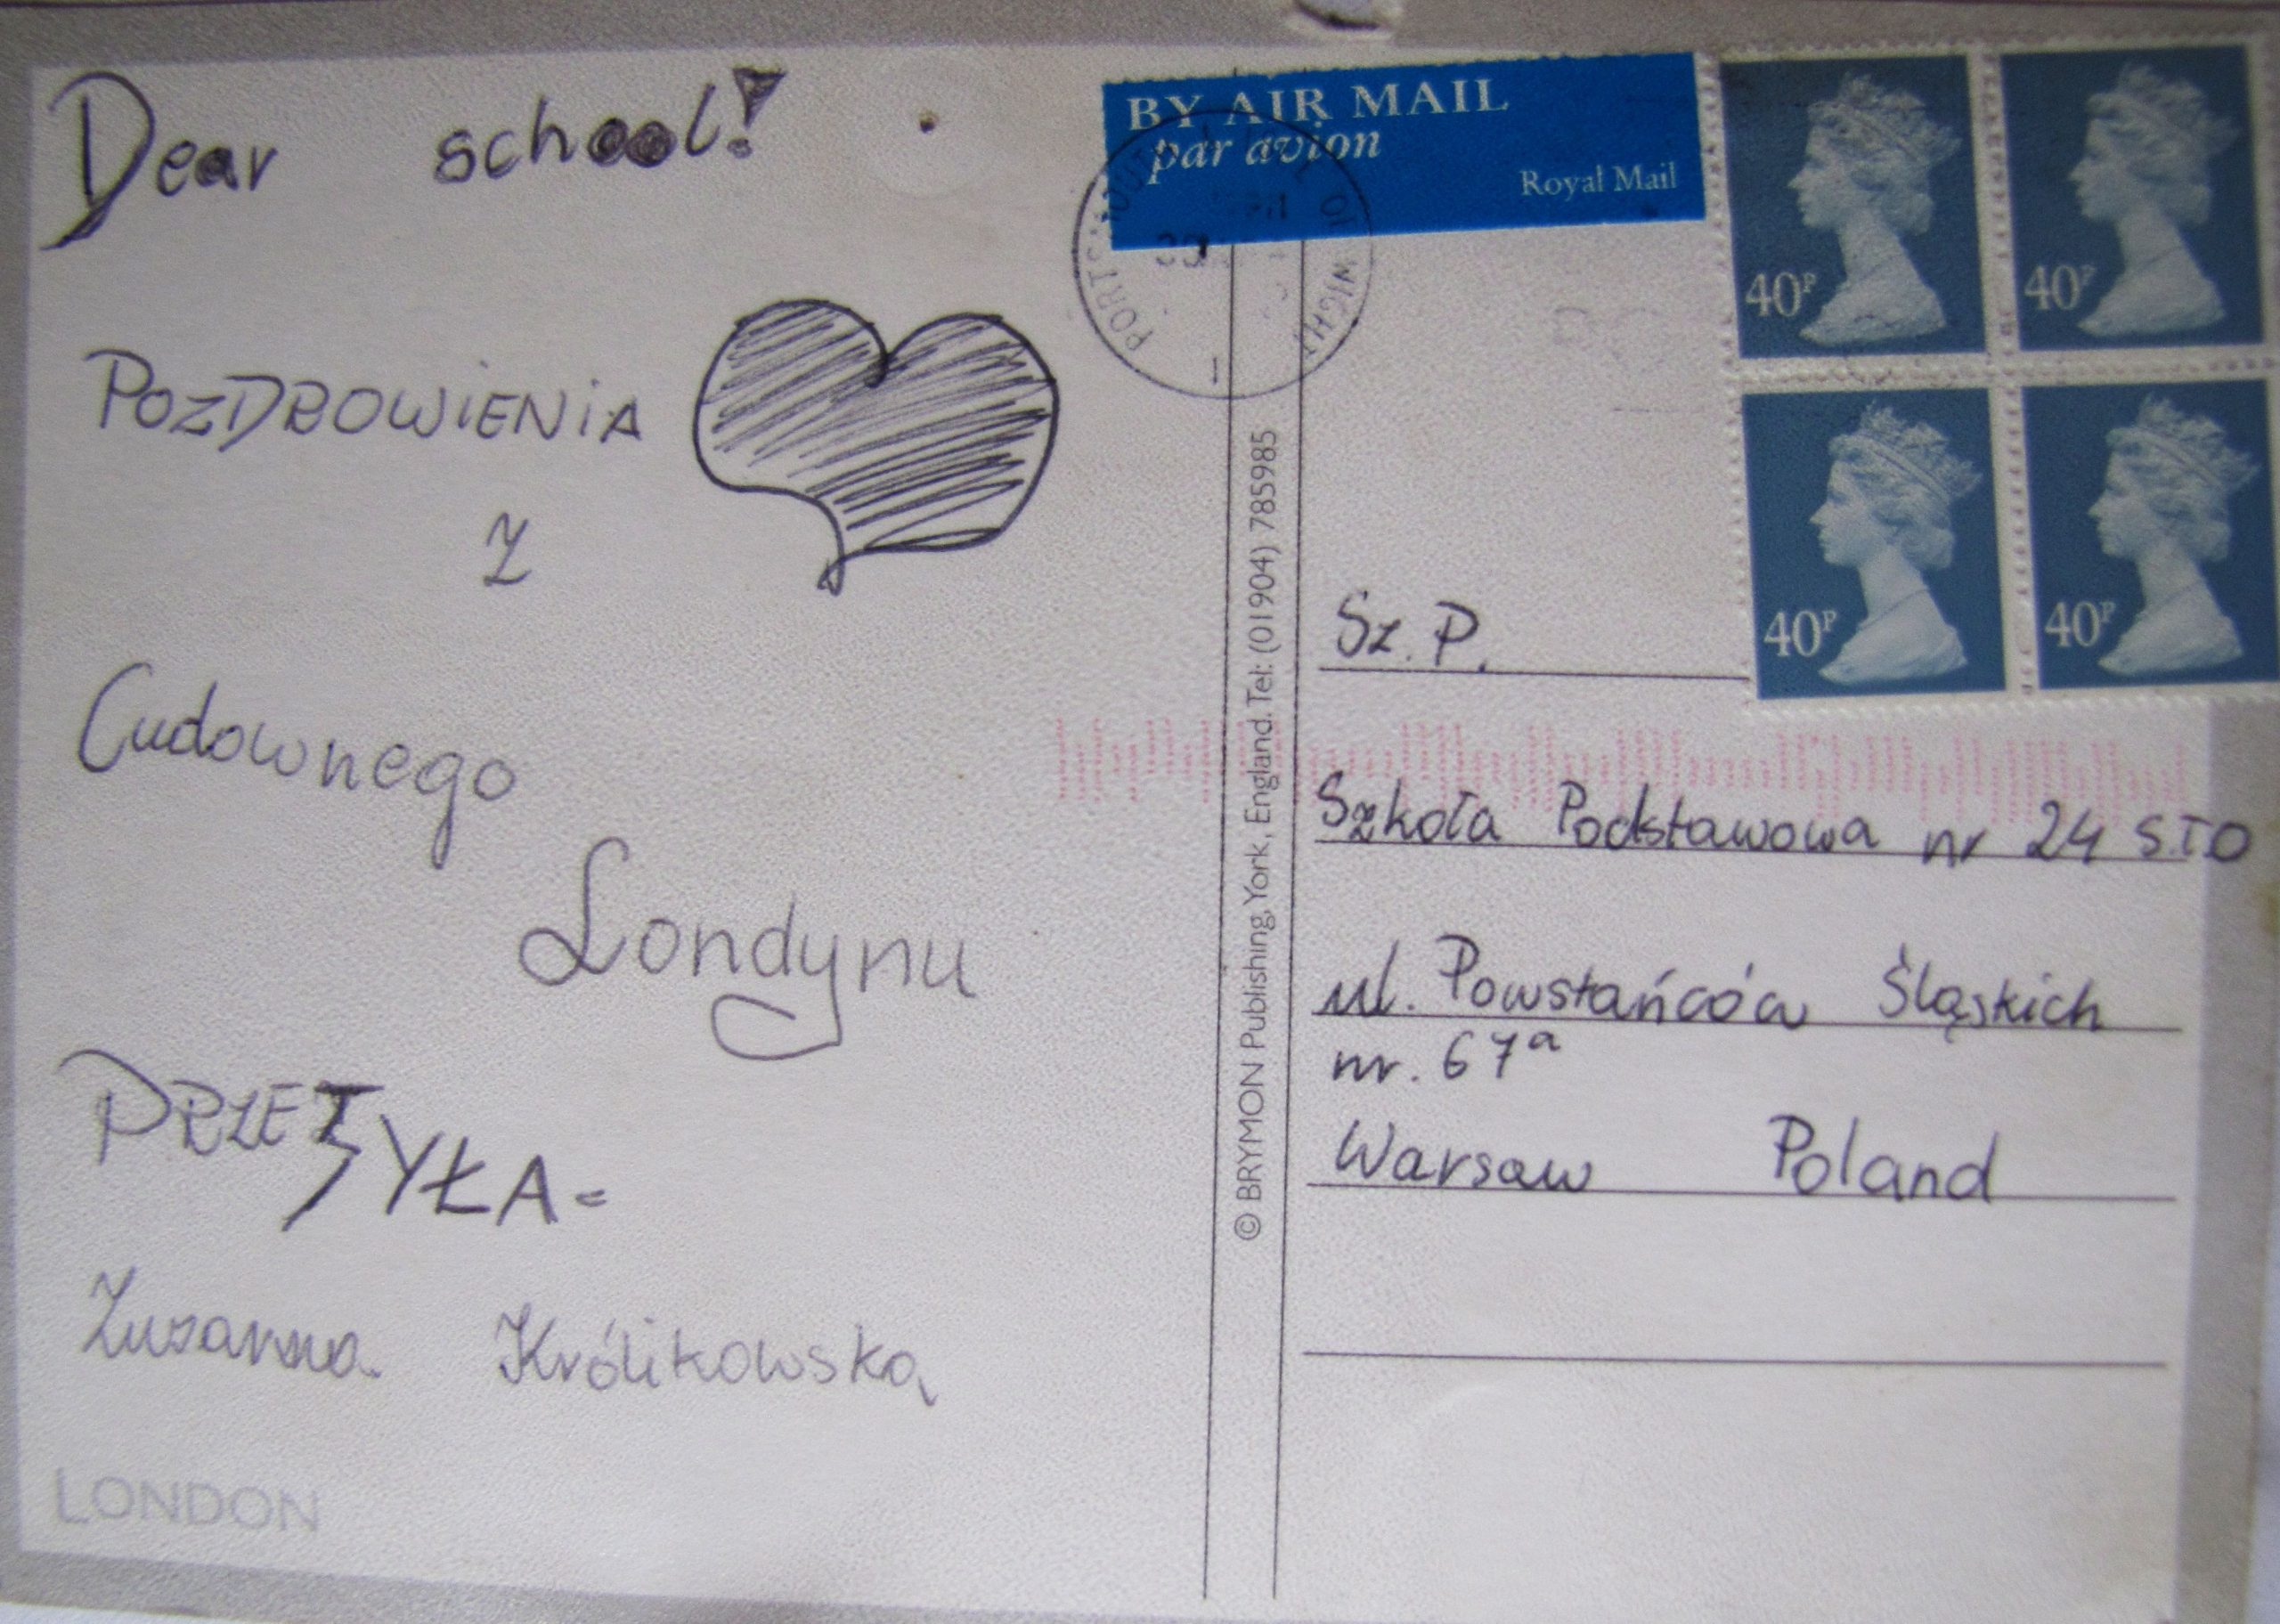 Dear school!
POZDROWIENIA
Z
Cudownego
Londynu
PRZESYŁA=
Zuzanna Królikowska
LONDON
© BRYMON Publishing, York, England. Tel: (01904) 785985
BY AIR MAIL
par avion
Royal Mail
40P
40P
40P
40P
WIGHT
Sz. P.
Szkoła Podstawowa nr 24 S.T.O
ul. Powstańców Śląskich
nr. 67a
Warsaw Poland